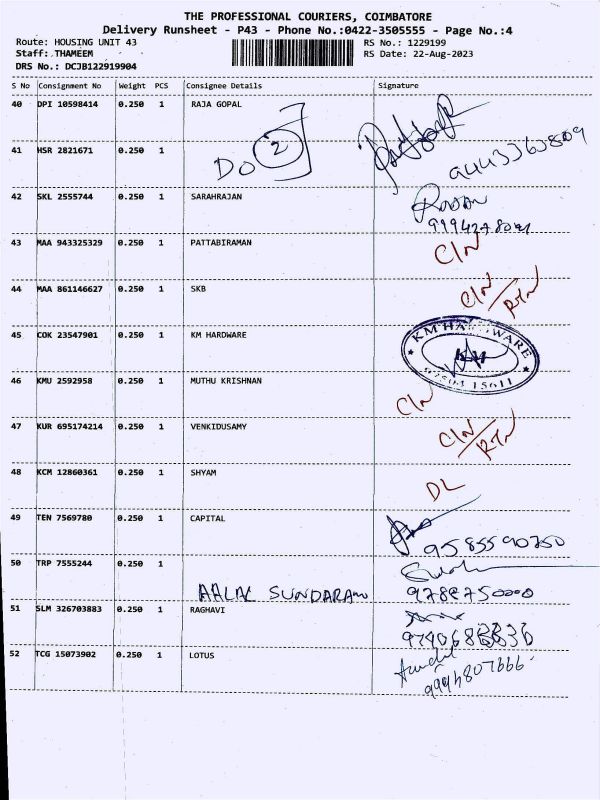 THE PROFESSIONAL COURIERS, COIMBATORE
Delivery Runsheet - P43 - Phone No.:0422-3505555 - Page No.:4
Route: HOUSING UNIT 43 RS No.: 1229199
Staff: THAMEEM RS Date: 22-Aug-2023
DRS No.: DCJB122919904
S No Consignment No Weight PCS Consignee Details Signature
40 DPI 10598414 0.250 1 RAJA GOPAL
41 HSR 2821671 0.250 1 DO 2
42 SKL 2555744 0.250 1 SARAHRAJAN
43 MAA 943325329 0.250 1 PATTABIRAMAN C/N
44 MAA 861146627 0.250 1 SKB C/N/RTN
45 COK 23547901 0.250 1 KM HARDWARE KM HARDWARE
46 KMU 2592958 0.250 1 MUTHU KRISHNAN C/N
47 KUR 695174214 0.250 1 VENKIDUSAMY C/N/RTN
48 KCM 12860361 0.250 1 SHYAM DL
49 TEN 7569780 0.250 1 CAPITAL 9585590750
50 TRP 7555244 0.250 1
SUNDARAM 9788750000
51 SLM 326703883 0.250 1 RAGHAVI
52 TCG 15073902 0.250 1 LOTUS 9994807666